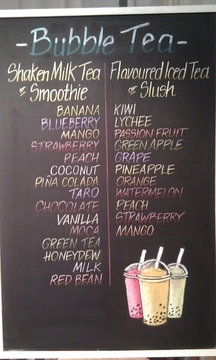 -Bubble Tea-
Shaken Milk Tea
or Smoothie
BANANA
BLUEBERRY
MANGO
STRAWBERRY
PEACH
COCONUT
PIÑA COLADA
TARO
CHOCOLATE
VANILLA
MOCA
GREEN TEA
HONEYDEW
MILK
RED BEAN
Flavoured Iced Tea
or Slush
KIWI
LYCHEE
PASSION FRUIT
GREEN APPLE
GRAPE
PINEAPPLE
ORANGE
WATERMELON
PEACH
STRAWBERRY
MANGO